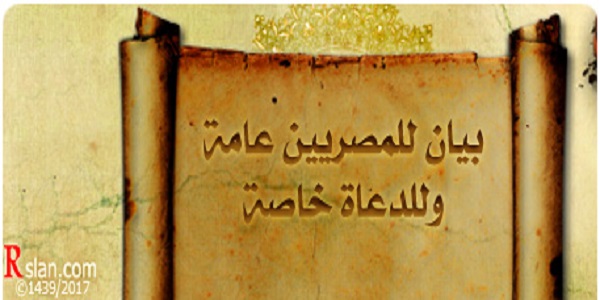 بيان للمصريين عامة
وللدعاة خاصة
Rslan.com
©1439/2017